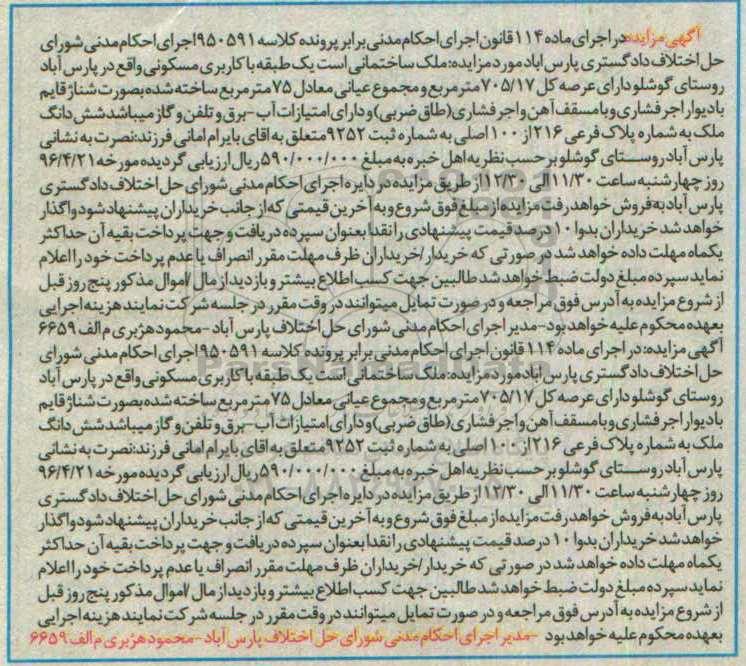 آگهی مزایده: در اجرای ماده ۱۱۴ قانون اجرای احکام مدنی برابر پرونده کلاسه ۹۵۰۵۹۱ اجرای احکام مدنی شورای
حل اختلاف دادگستری پارس اباد مورد مزایده: ملک ساختمانی است یک طبقه با کاربری مسکونی واقع در پارس آباد
روستای گوشلو دارای عرصه کل ۷۰۵/۱۷ مترمربع و مجموع عیانی معادل ۷۵ مترمربع ساخته شده بصورت شناژ قایم
با دیوار اجر فشاری و با مسقف آهن و اجر فشاری (طاق ضربی) و دارای امتیازات آب - برق و تلفن و گاز میباشد شش دانگ
ملک به شماره پلاک فرعی ۲۱۶ از ۱۰۰ اصلی به شماره ثبت ۹۲۵۲ متعلق به اقای بایرام امانی فرزند: نصرت به نشانی
پارس آباد روستای گوشلو بر حسب نظریه اهل خبره به مبلغ ۵۹۰/۰۰۰/۰۰۰ ریال ارزیابی گردیده مورخه ۹۶/۴/۲۱
روز چهارشنبه ساعت ۱۱/۳۰ الی ۱۲/۳۰ از طریق مزایده در دایره اجرای احکام مدنی شورای حل اختلاف دادگستری
پارس آباد به فروش خواهد رفت مزایده از مبلغ فوق شروع و به آخرین قیمتی که از جانب خریداران پیشنهاد شود واگذار
خواهد شد خریداران بدوا ۱۰ درصد قیمت پیشنهادی را نقدا بعنوان سپرده دریافت و جهت پرداخت بقیه آن حداکثر
یکماه مهلت داده خواهد شد در صورتی که خریدار/خریداران ظرف مهلت مقرر انصراف یا عدم پرداخت خود را اعلام
نماید سپرده مبلغ دولت ضبط خواهد شد طالبین جهت کسب اطلاع بیشتر و بازدید از مال /اموال مذکور پنج روز قبل
از شروع مزایده به آدرس فوق مراجعه و در صورت تمایل میتوانند در وقت مقرر در جلسه شرکت نمایند هزینه اجرایی
بعهده محکوم علیه خواهد بود - مدیر اجرای احکام مدنی شورای حل اختلاف پارس آباد - محمود هژبری م الف ۶۶۵۹
آگهی مزایده: در اجرای ماده ۱۱۴ قانون اجرای احکام مدنی برابر پرونده کلاسه ۹۵۰۵۹۱ اجرای احکام مدنی شورای
حل اختلاف دادگستری پارس اباد مورد مزایده: ملک ساختمانی است یک طبقه با کاربری مسکونی واقع در پارس آباد
روستای گوشلو دارای عرصه کل ۷۰۵/۱۷ مترمربع و مجموع عیانی معادل ۷۵ مترمربع ساخته شده بصورت شناژ قایم
با دیوار اجر فشاری و با مسقف آهن و اجر فشاری (طاق ضربی) و دارای امتیازات آب - برق و تلفن و گاز میباشد شش دانگ
ملک به شماره پلاک فرعی ۲۱۶ از ۱۰۰ اصلی به شماره ثبت ۹۲۵۲ متعلق به اقای بایرام امانی فرزند: نصرت به نشانی
پارس آباد روستای گوشلو بر حسب نظریه اهل خبره به مبلغ ۵۹۰/۰۰۰/۰۰۰ ریال ارزیابی گردیده مورخه ۹۶/۴/۲۱
روز چهارشنبه ساعت ۱۱/۳۰ الی ۱۲/۳۰ از طریق مزایده در دایره اجرای احکام مدنی شورای حل اختلاف دادگستری
پارس آباد به فروش خواهد رفت مزایده از مبلغ فوق شروع و به آخرین قیمتی که از جانب خریداران پیشنهاد شود واگذار
خواهد شد خریداران بدوا ۱۰ درصد قیمت پیشنهادی را نقدا بعنوان سپرده دریافت و جهت پرداخت بقیه آن حداکثر
یکماه مهلت داده خواهد شد در صورتی که خریدار/خریداران ظرف مهلت مقرر انصراف یا عدم پرداخت خود را اعلام
نماید سپرده مبلغ دولت ضبط خواهد شد طالبین جهت کسب اطلاع بیشتر و بازدید از مال /اموال مذکور پنج روز قبل
از شروع مزایده به آدرس فوق مراجعه و در صورت تمایل میتوانند در وقت مقرر در جلسه شرکت نمایند هزینه اجرایی
بعهده محکوم علیه خواهد بود - مدیر اجرای احکام مدنی شورای حل اختلاف پارس آباد - محمود هژبری م الف ۶۶۵۹